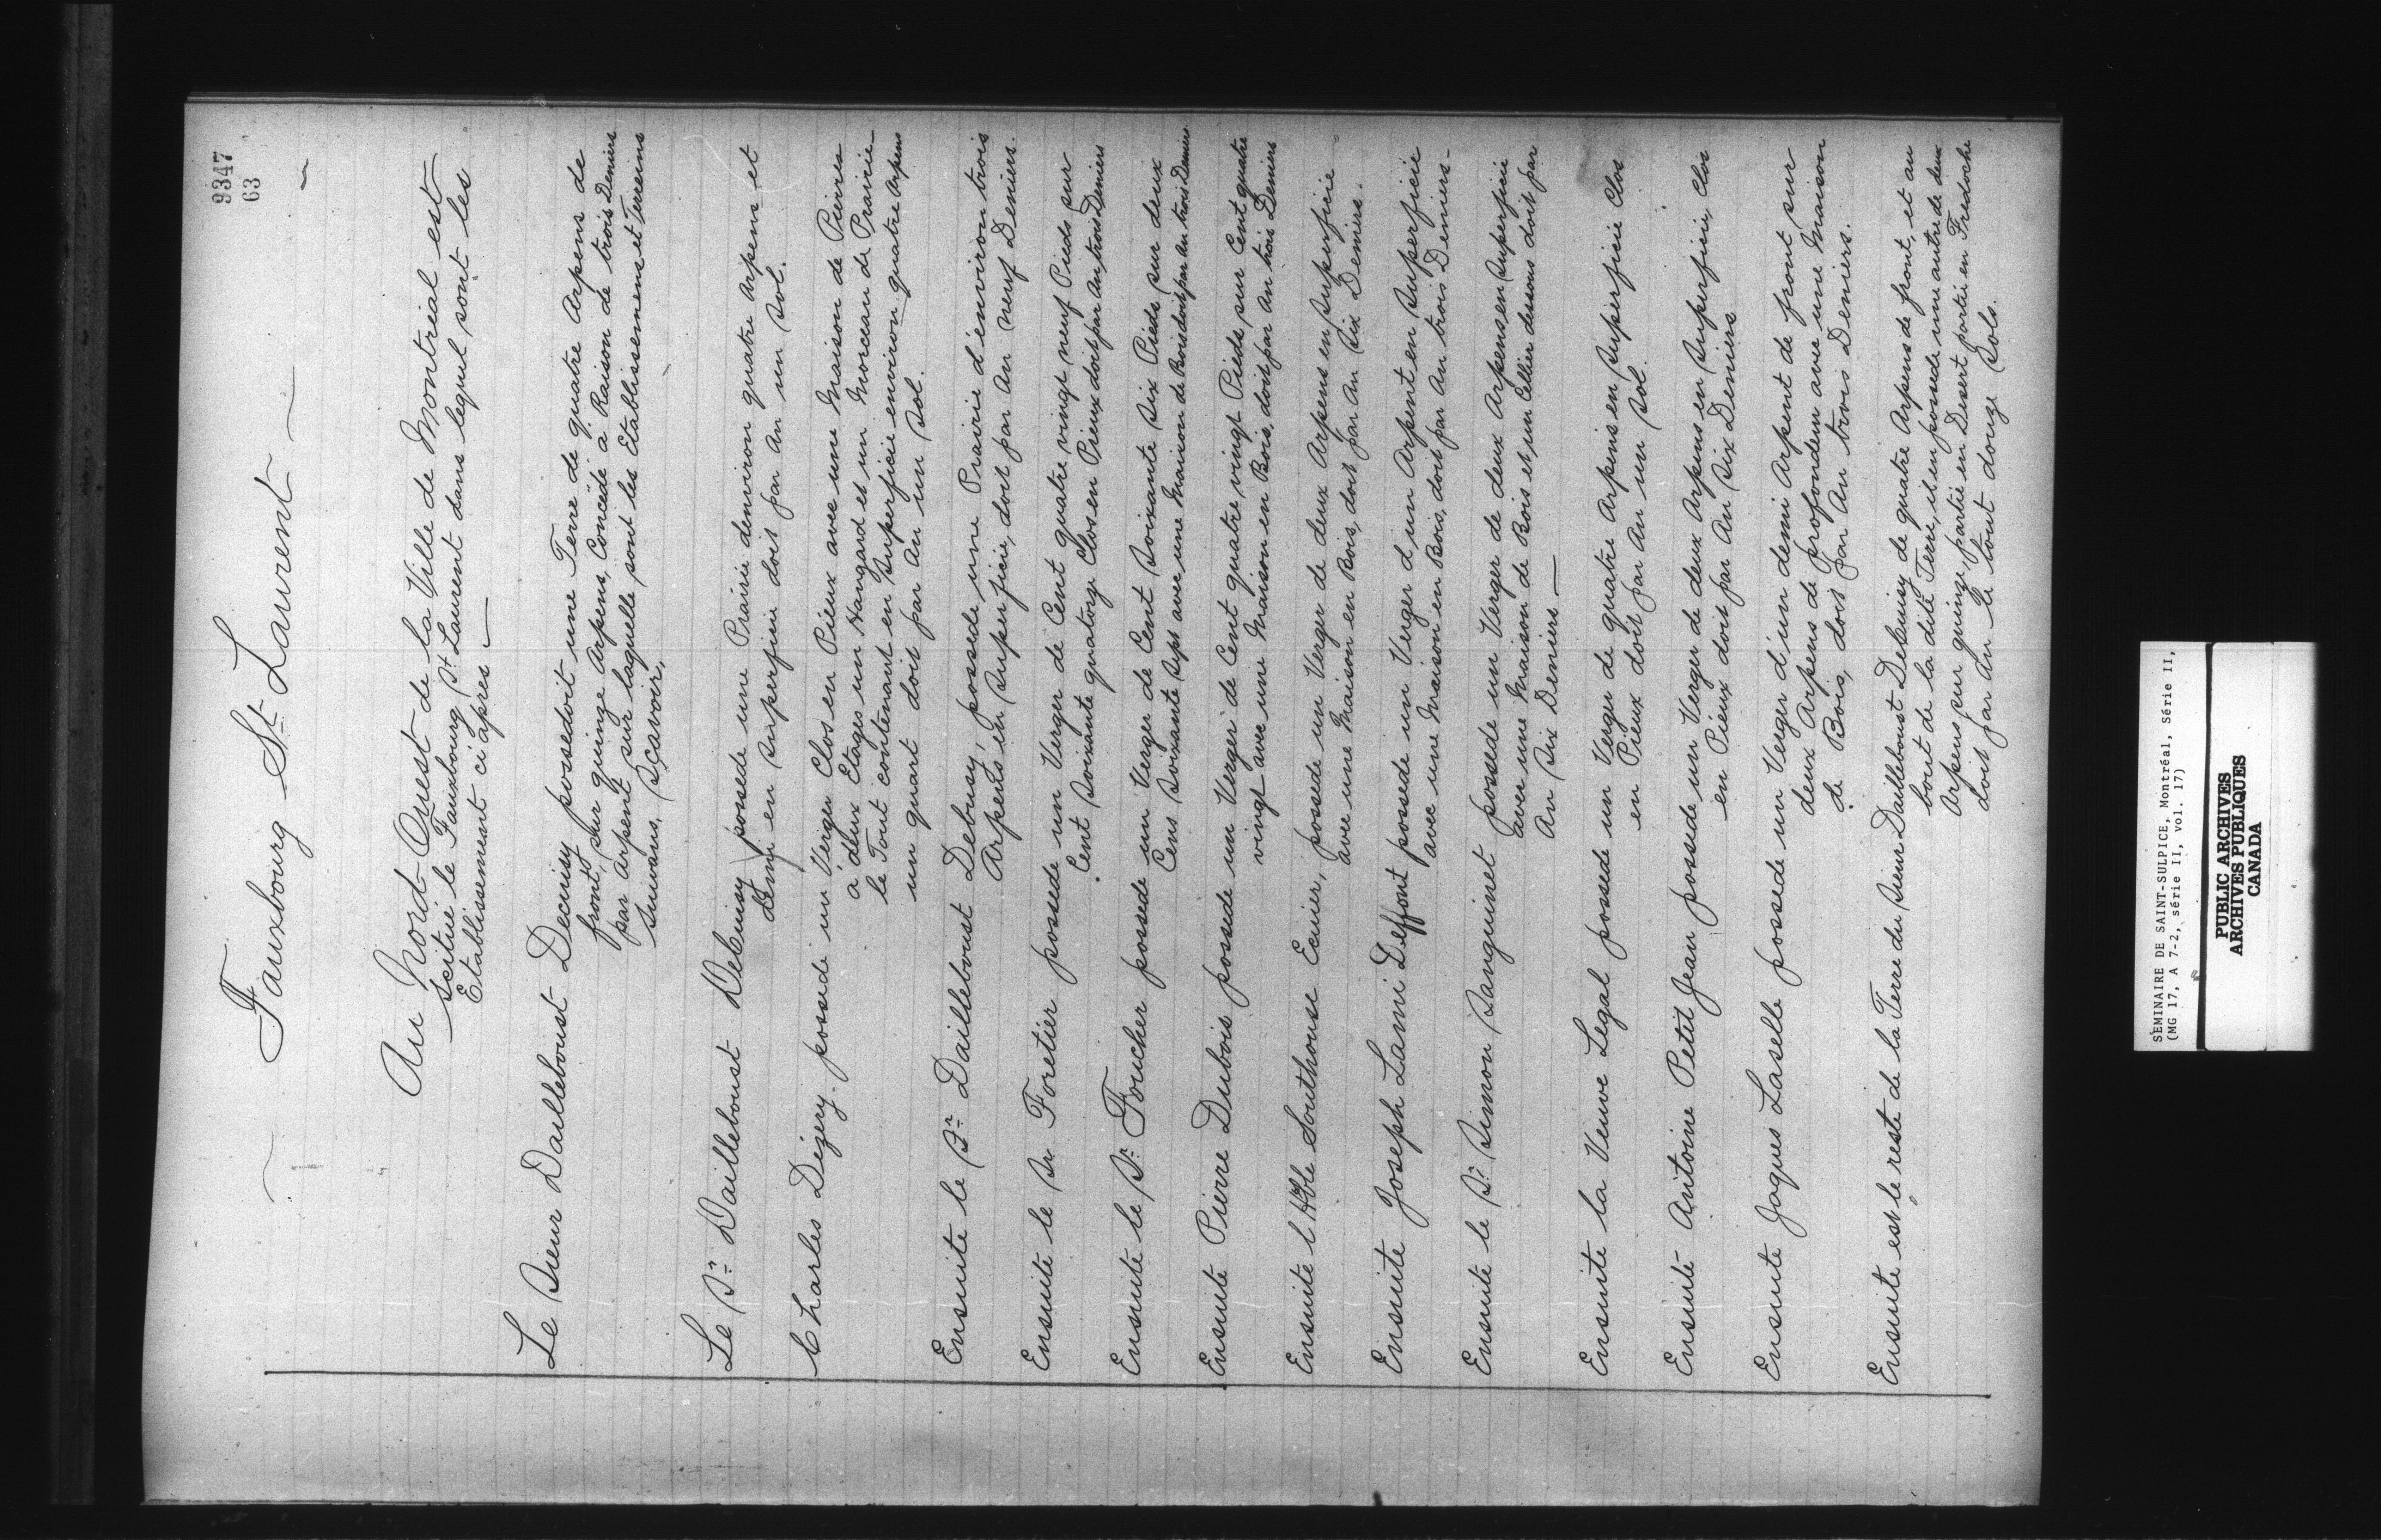 9347
63
Fauxbourg St. Laurent
Au Nord-Ouest de la Ville de Montréal est
scitué le Fauxbourg St. Laurent dans lequel sont les
Etablissement ci après
Le Sieur Dailleboust Decuisy possedoit une Terre de quatre Arpens de
front, sur quinze Arpens, Concédé à Raison de trois Deniers
par Arpent sur laquelle sont les Etablissemens et Terreins
suivans, Sçavoir,
Le Sr. Dailleboust Decuisy possede une Prairie denviron quatre Arpens et
demy en superficie doit par An un Sol.
Charles Dézery possede un Verger Clos en Pieux avec une Maison de Pierres
a deux Etages un Hangard et un Morceau de Prairie
le Tout contenant en Superficie environ quatre Arpens
un quart doit par An un Sol.
Ensuite le Sr. Dailleboust Decuisy, possede une Prairie d'environ trois
Arpents en Superficie, doit par An neuf Deniers.
Ensuite le Sr Foretier possede un Verger de Cent quatre vingt neuf Pieds sur
Cent Soixante quatorze Clos en Pieux doit par An trois Deniers
Ensuite le Sr. Foucher possede un Verger de Cent Soixante Six Pieds sur deux
Cens Soixante Sept avec une Maison de Bois doit par An trois Deniers
Ensuite Pierre Dubois possede un Verger de Cent quatre vingt Pieds sur Cent quatre
vingt avec une Maison en Bois, doit par An trois Deniers
Ensuite l'Hble Southouse Ecuier, possede un Verger de deux Arpens en Superficie
avec une Maison en Bois, doit par An Six Deniers.
Ensuite Joseph Lami Deffont possede un Verger d'un Arpent en Superficie
avec une Maison en Bois, doit par An trois Deniers -
Ensuite le Sr. Simon Sanguinet possede un Verger de deux Arpens en Superficie
avec une Maison de Bois et un Cellier dessous doit par
An Six Deniers
Ensuite la Veuve Legal possede un Verger de quatre Arpens en Superficie Clos
en Pieux doit par An un Sol.
Ensuite Antoine Petit Jean possede un Verger de deux Arpens en Superficie, Clos
en Pieux doit par An Six Deniers
Ensuite Jaques Laselle possede un Verger d'un demi Arpent de front sur
deux Arpens de profondeur avec une Maison
de Bois, doit par An trois Deniers.
Ensuite est le reste de la Terre du Sieur Dailleboust Decuisy de quatre Arpens de front, et au
bout de la dite Terre, il en possede une autre de deux
Arpens sur quinze, partie en Desert partie en Fredoche
doit par An le tout douze Sols.
SEMINAIRE DE SAINT-SULPICE, Montréal, Série II,
(MG 17, A 7-2, série II, vol. 17)
PUBLIC ARCHIVES
ARCHIVES PUBLIQUES
CANADA